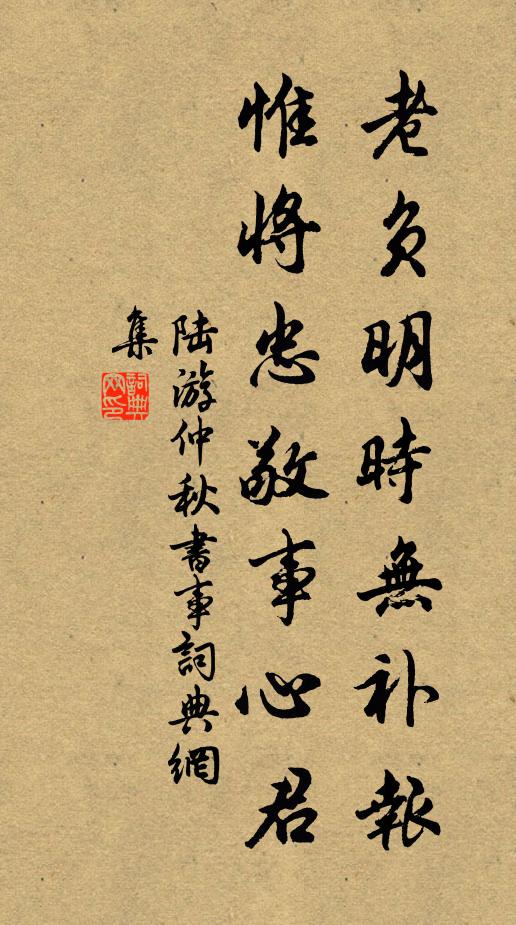 老負明時無补報
惟將忠敬事心君
陆游仲秋書事詞典網
集
詞典網印